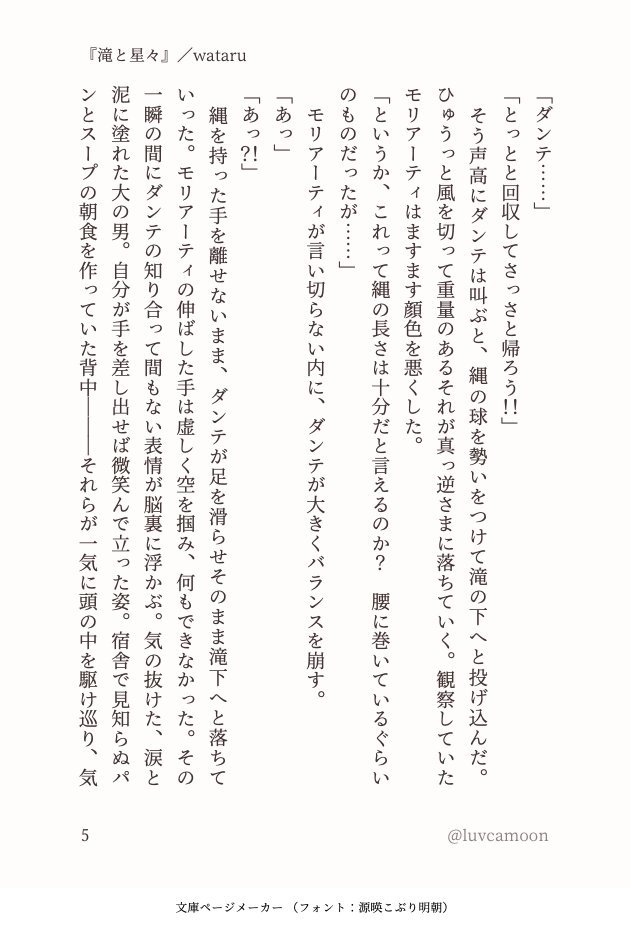 『滝と星々』／wataru
「ダンテ……」
「とっとと回収してさっさと帰ろう!!」
　そう声高にダンテは叫ぶと、縄の球を勢いをつけて滝の下へと投げ込んだ。
ひゅうっと風を切って重量のあるそれが真っ逆さまに落ちていく。観察していた
モリアーティはますます顔色を悪くした。
「というか、これって縄の長さは十分だと言えるのか？　腰に巻いているぐらい
のものだったが……」
　モリアーティが言い切らない内に、ダンテが大きくバランスを崩す。
「あっ」
「あっ?!」
　縄を持った手を離せないまま、ダンテが足を滑らせそのまま滝下へと落ちて
いった。モリアーティの伸ばした手は虚しく空を掴み、何もできなかった。その
一瞬の間にダンテの知り合って間もない表情が脳裏に浮かぶ。気の抜けた、涙と
泥に塗れた大の男。自分が手を差し出せば微笑んで立った姿。宿舎で見知らぬパ
ンとスープの朝食を作っていた背中―――それらが一気に頭の中を駆け巡り、気
5
@luvcamoon
文庫ページメーカー（フォント：源暎こぶり明朝）